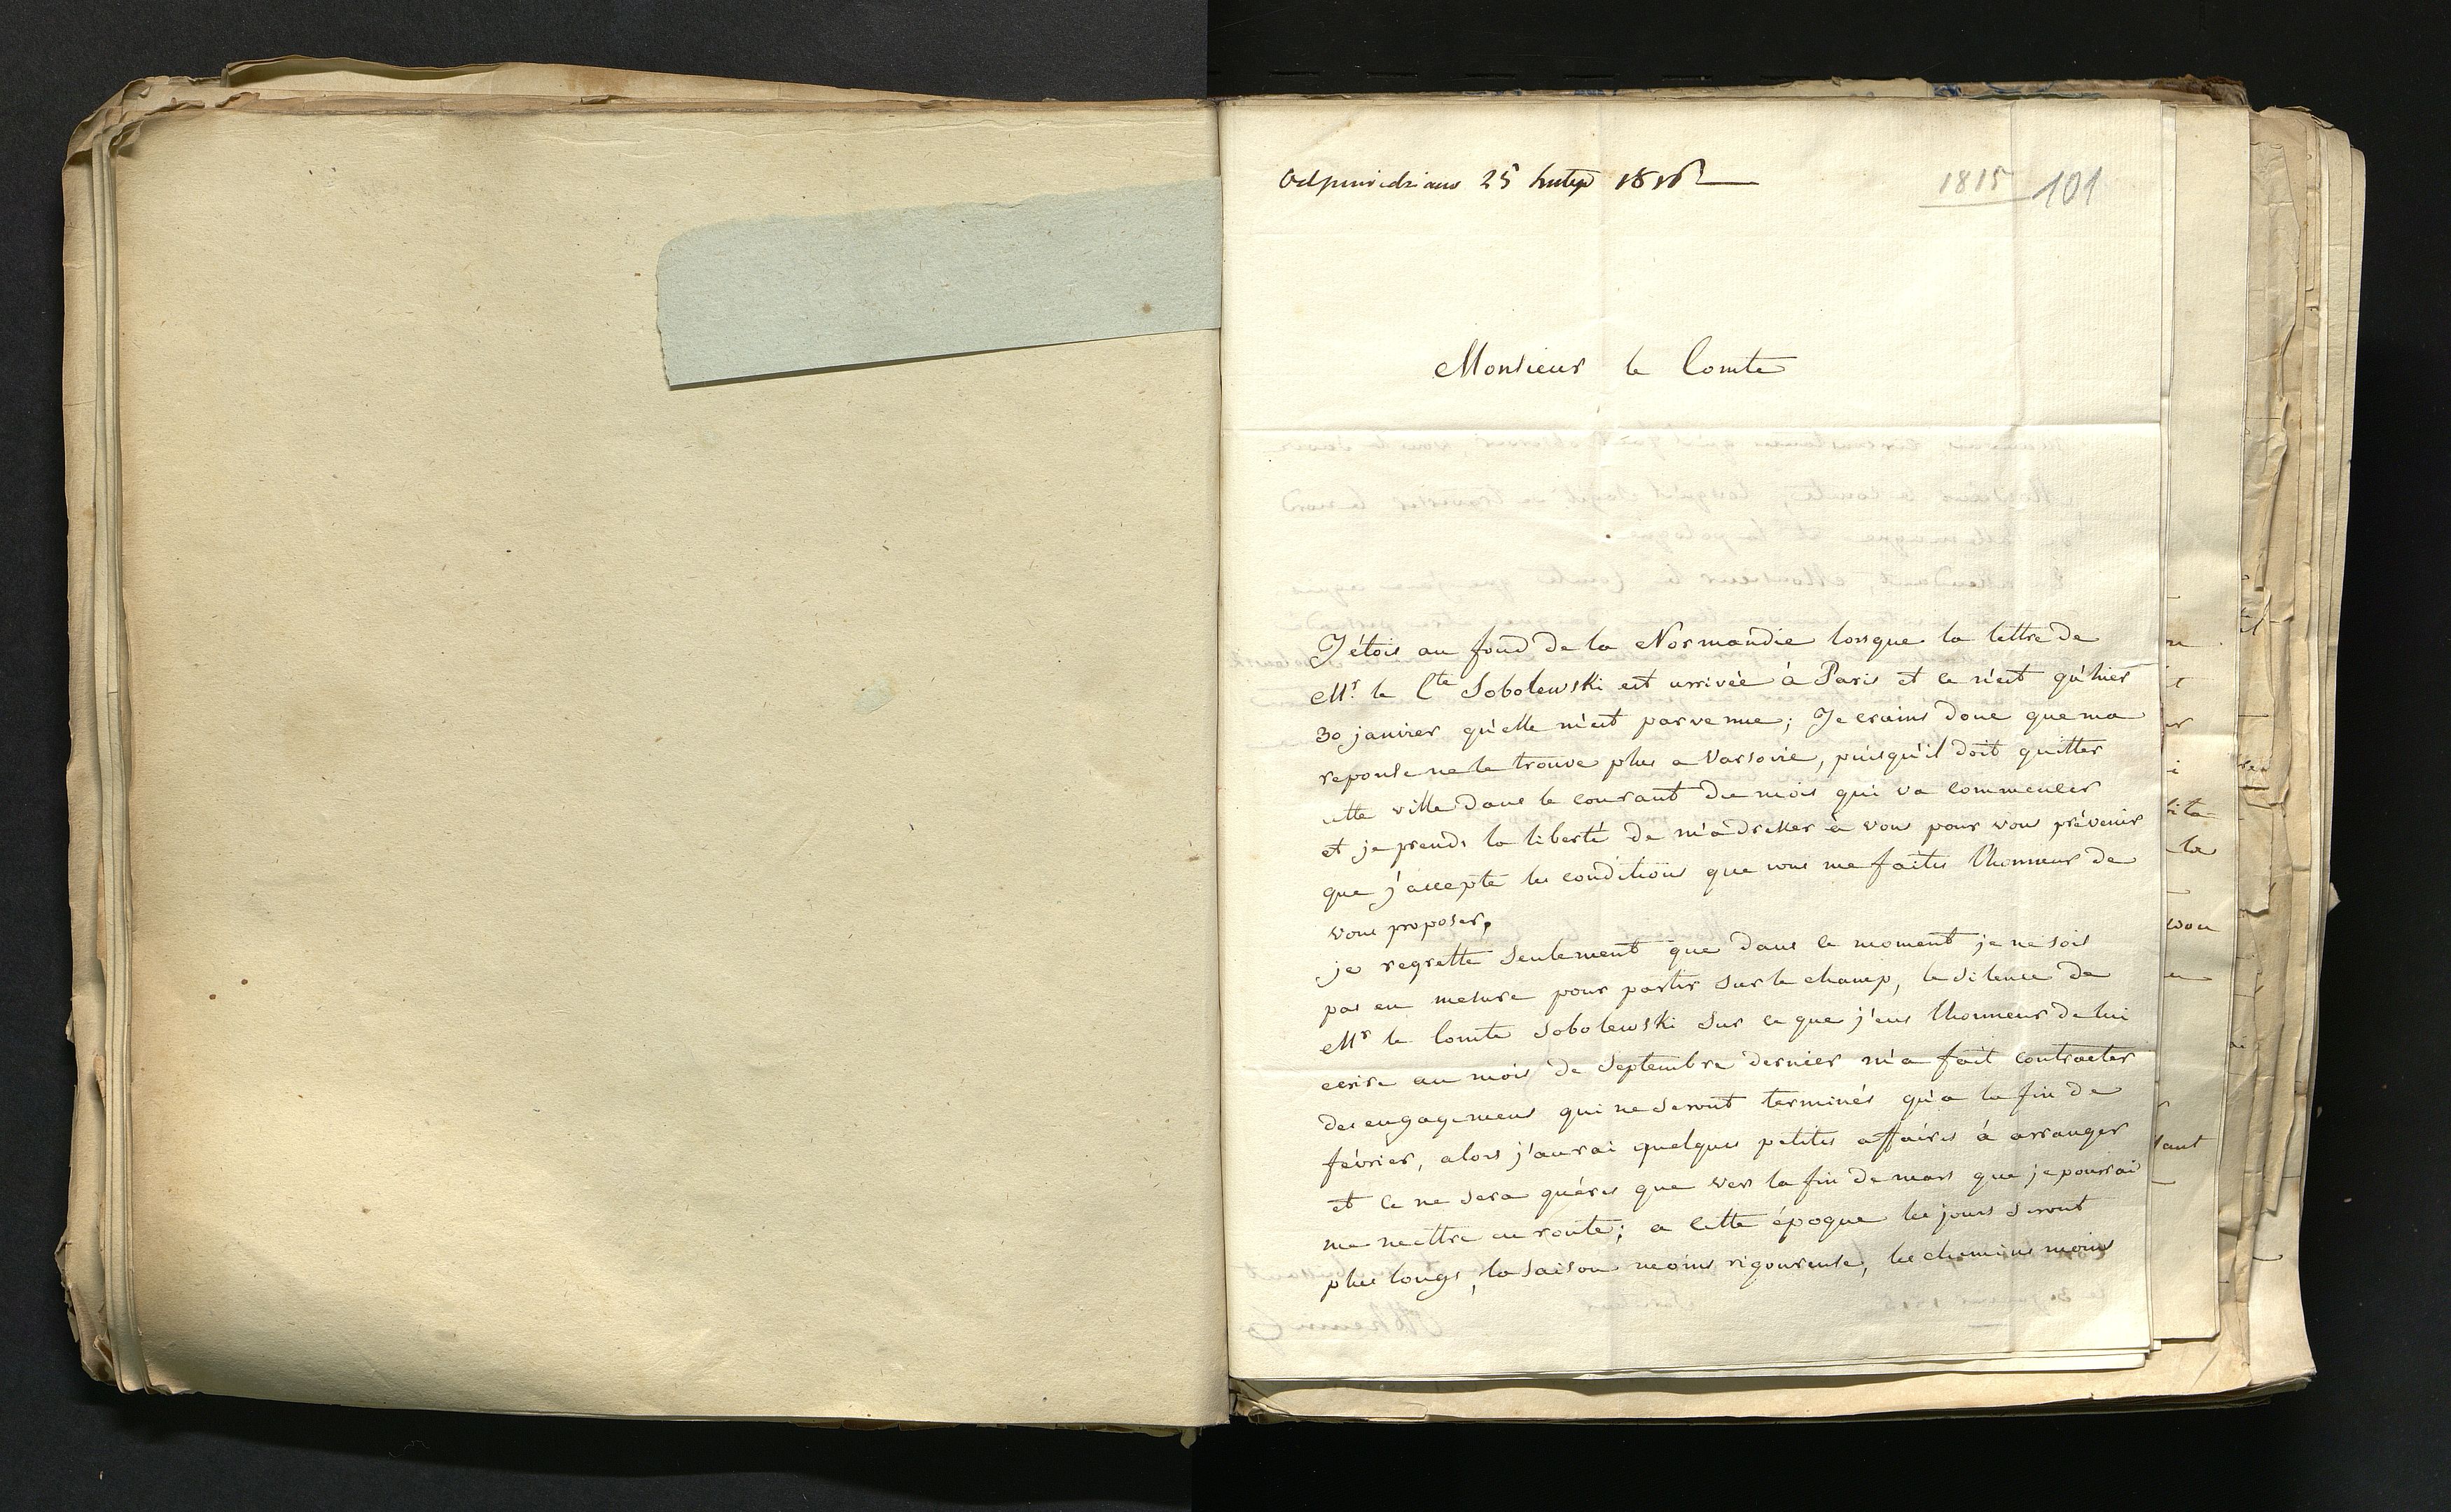 Odpowiedziano 25 Lutego 1816
1815 101
Monsieur le Comte
J'étois au fond de la Normandie lorsque la lettre de
Mr. le Cte Sobolewski est arrivée à Paris et ce n'est qu'hier
30 janvier qu'elle m'est parvenue; Je crains donc que ma
reponse ne le trouve plus a Varsovie, puisqu'il doit quitter
cette ville dans le courant du mois qui va commencer
et je prends la liberté de m'adresser à vous pour vous prévenir
que j'accepte les conditions que vous me faites l'honneur de
vous proposer.
je regrette seulement que dans ce moment je ne sois
pas en mesure pour partir sur le champ, le silence de
Mr le Comte Sobolewski sur ce que j'eus l'honneur de lui
ecrire au mois de Septembre dernier m'a fait contracter
des engagemens qui ne seront terminés qu'a la fin de
février, alors j'aurai quelques petites affaires à arranger
et ce ne sera guéres que vers la fin de mars que je pourrai
me mettre en route; a cette époque les jours seront
plus longs, la saison moins rigoureuse, les chemins moins